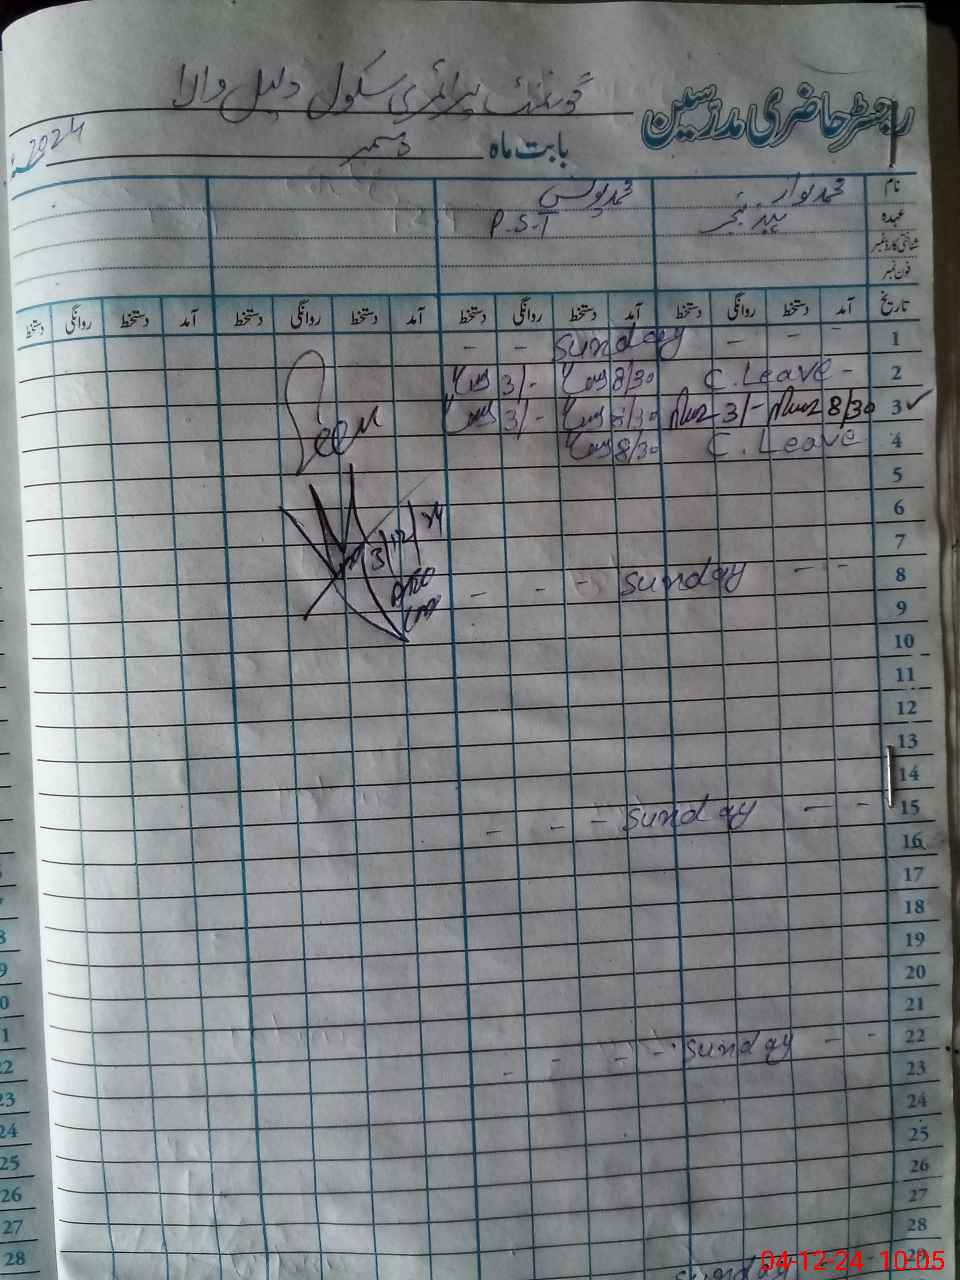 رجسٹر حاضری مدرسین
گورنمنٹ پرائمری سکول دلیل والا
بابت ماہ دسمبر 2024ء
نام محمد نواز محمد یونس
عہدہ ہیڈ ٹیچر P.S.T
شناختی کارڈ نمبر
فون نمبر
تاریخ آمد دستخط روانگی دستخط آمد دستخط روانگی دستخط آمد دستخط روانگی دستخط آمد دستخط روانگی دستخط
1 - - - Sunday - -
2 C.Leave - 8/30 3/-
3 ✓ 8/30 3/- 8/30 3/-
4 C.Leave 8/30
Seen
5
6
7
3/12/24
8 - - Sunday - - -
AEO
9
10
11
12
13
14
15 - - Sunday - - -
16
17
18
19
20
21
22 - - Sunday - - - -
23
24
25
26
27
28
29 Sunday
04-12-24 10:05
8
9
0
1
22
23
24
25
26
27
28